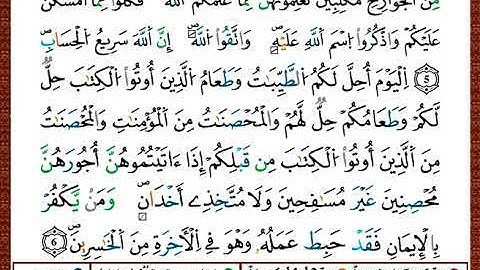 مِّنَ الْجَوَارِحِ مُكَلِّبِينَ تُعَلِّمُونَهُنَّ مِمَّا عَلَّمَكُمُ اللَّهُ ۖ فَكُلُوا مِمَّا أَمْسَكْنَ
عَلَيْكُمْ وَاذْكُرُوا اسْمَ اللَّهِ عَلَيْهِ ۖ وَاتَّقُوا اللَّهَ ۚ إِنَّ اللَّهَ سَرِيعُ الْحِسَابِ
5 الْيَوْمَ أُحِلَّ لَكُمُ الطَّيِّبَاتُ ۖ وَطَعَامُ الَّذِينَ أُوتُوا الْكِتَابَ حِلٌّ
لَّكُمْ وَطَعَامُكُمْ حِلٌّ لَّهُمْ ۖ وَالْمُحْصَنَاتُ مِنَ الْمُؤْمِنَاتِ وَالْمُحْصَنَاتُ
مِنَ الَّذِينَ أُوتُوا الْكِتَابَ مِن قَبْلِكُمْ إِذَا ءَاتَيْتُمُوهُنَّ أُجُورَهُنَّ
مُحْصِنِينَ غَيْرَ مُسَافِحِينَ وَلَا مُتَّخِذِي أَخْدَانٍ ۗ وَمَنْ يَّكْفُرْ
بِالْإِيمَانِ فَقَدْ حَبِطَ عَمَلُهُ وَهُوَ فِي الْآخِرَةِ مِنَ الْخَاسِرِينَ 6